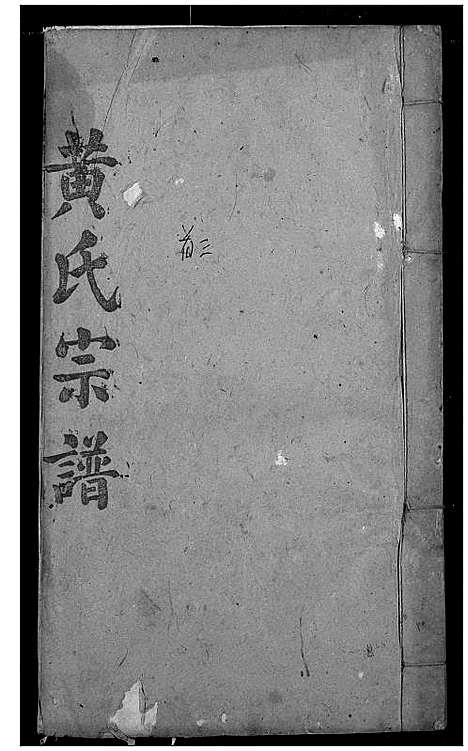 黄氏宗譜
首三